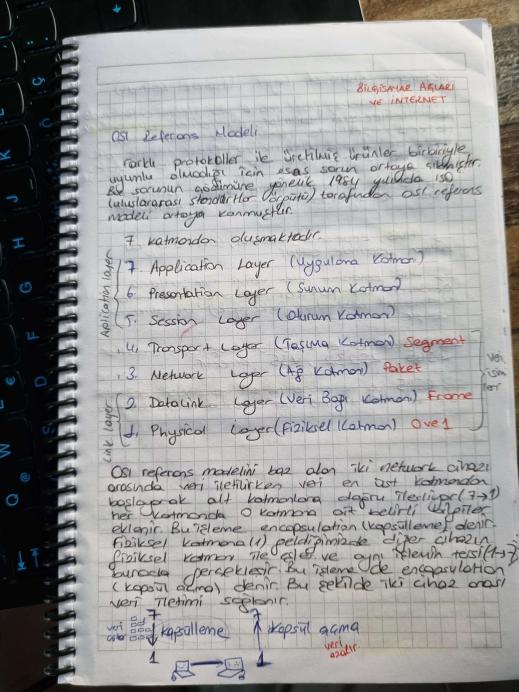 BİLGİSAYAR AĞLARI
VE İNTERNET
OSI Referans Modeli
Farklı protokoller ile üretilmiş ürünler birbiriyle
uyumlu olmadığı için esas sorun ortaya çıkmıştır.
Bu sorunun çözümüne yönelik 1984 yılında ISO
(uluslararası standartlar örgütü) tarafından osi referans
modeli ortaya konmuştur.
7 katmandan oluşmaktadır.
Application layer
7. Application Layer (Uygulama Katmanı)
6. Presentation Layer (Sunum Katmanı)
5. Session Layer (Oturum Katmanı)
4. Transport Layer (Taşıma Katmanı) Segment
3. Network Layer (Ağ Katmanı) Paket
veri
isim
ler
Link Layer
2. DataLink Layer (Veri Bağı Katmanı) Frame
1. Physical Layer (Fiziksel Katman) 0 ve 1
OSI referans modelini baz alan iki network cihazı
arasında veri iletilirken veri en üst katmandan
başlayarak alt katmanlara doğru ilerliyor (7→1)
her katmanda o katmana ait belirli bilgiler
eklenir. Bu işleme encapsulation (kapsülleme) denir.
Fiziksel katmana (1) geldiğimizde diğer cihazın
fiziksel katman ile eşler ve aynı işlemin tersi (1→7)
burada gerçekleşir. Bu işleme de encapsulation
(kapsül açma) denir. Bu şekilde iki cihaz arası
veri iletimi sağlanır.
7 7
veri kapsülleme kapsül açma
1 1
veri
azalır.